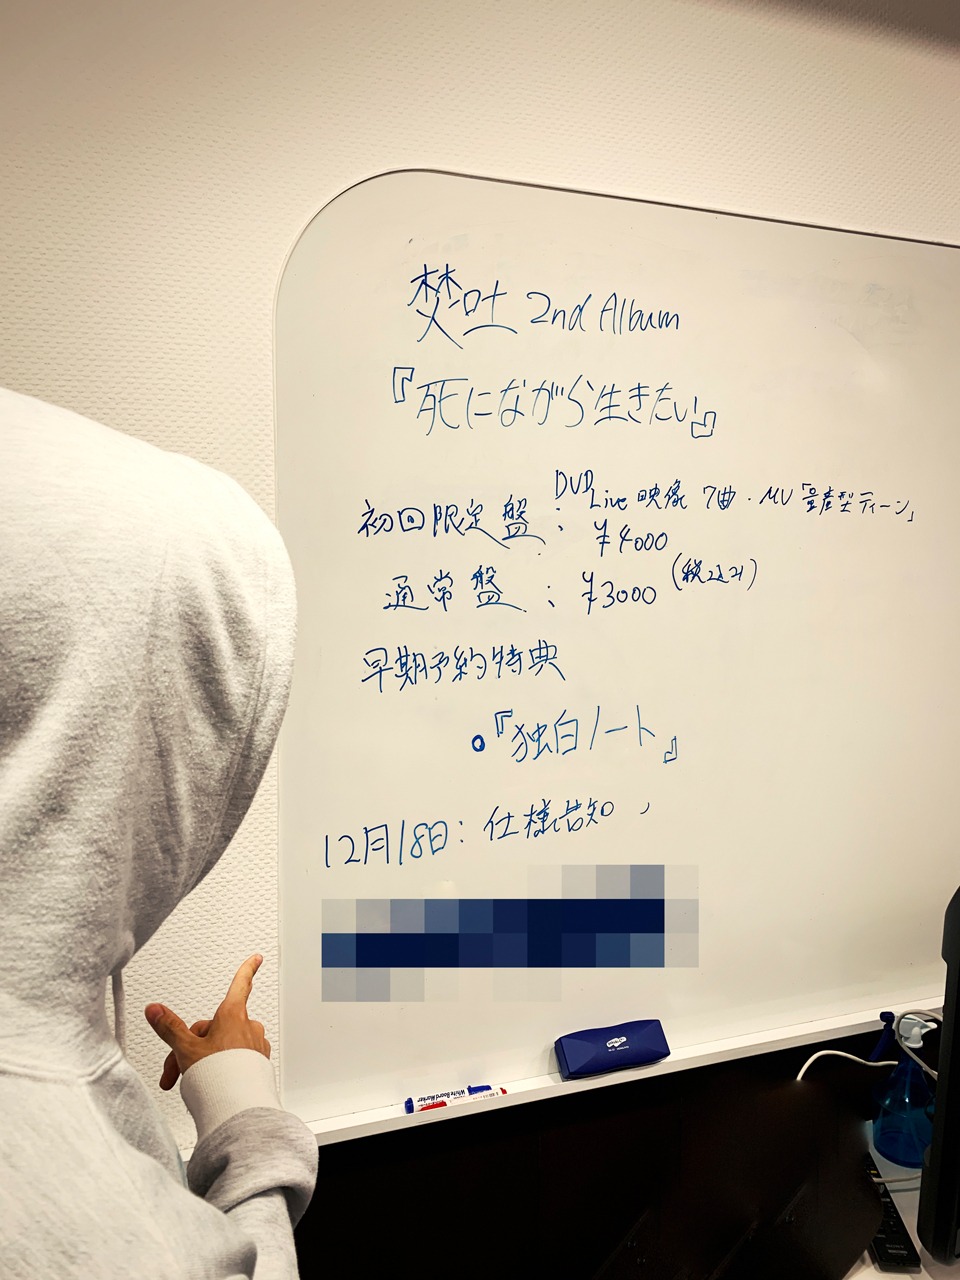 焚吐 2nd Album
『死にながら生きたい』
初回限定盤: DVD Live映像 7曲・MV「量産型ティーン」
¥4000
通常盤: ¥3000 (税込み)
早期予約特典
・『独白ノート』
12月18日: 仕様告知
White Board Marker